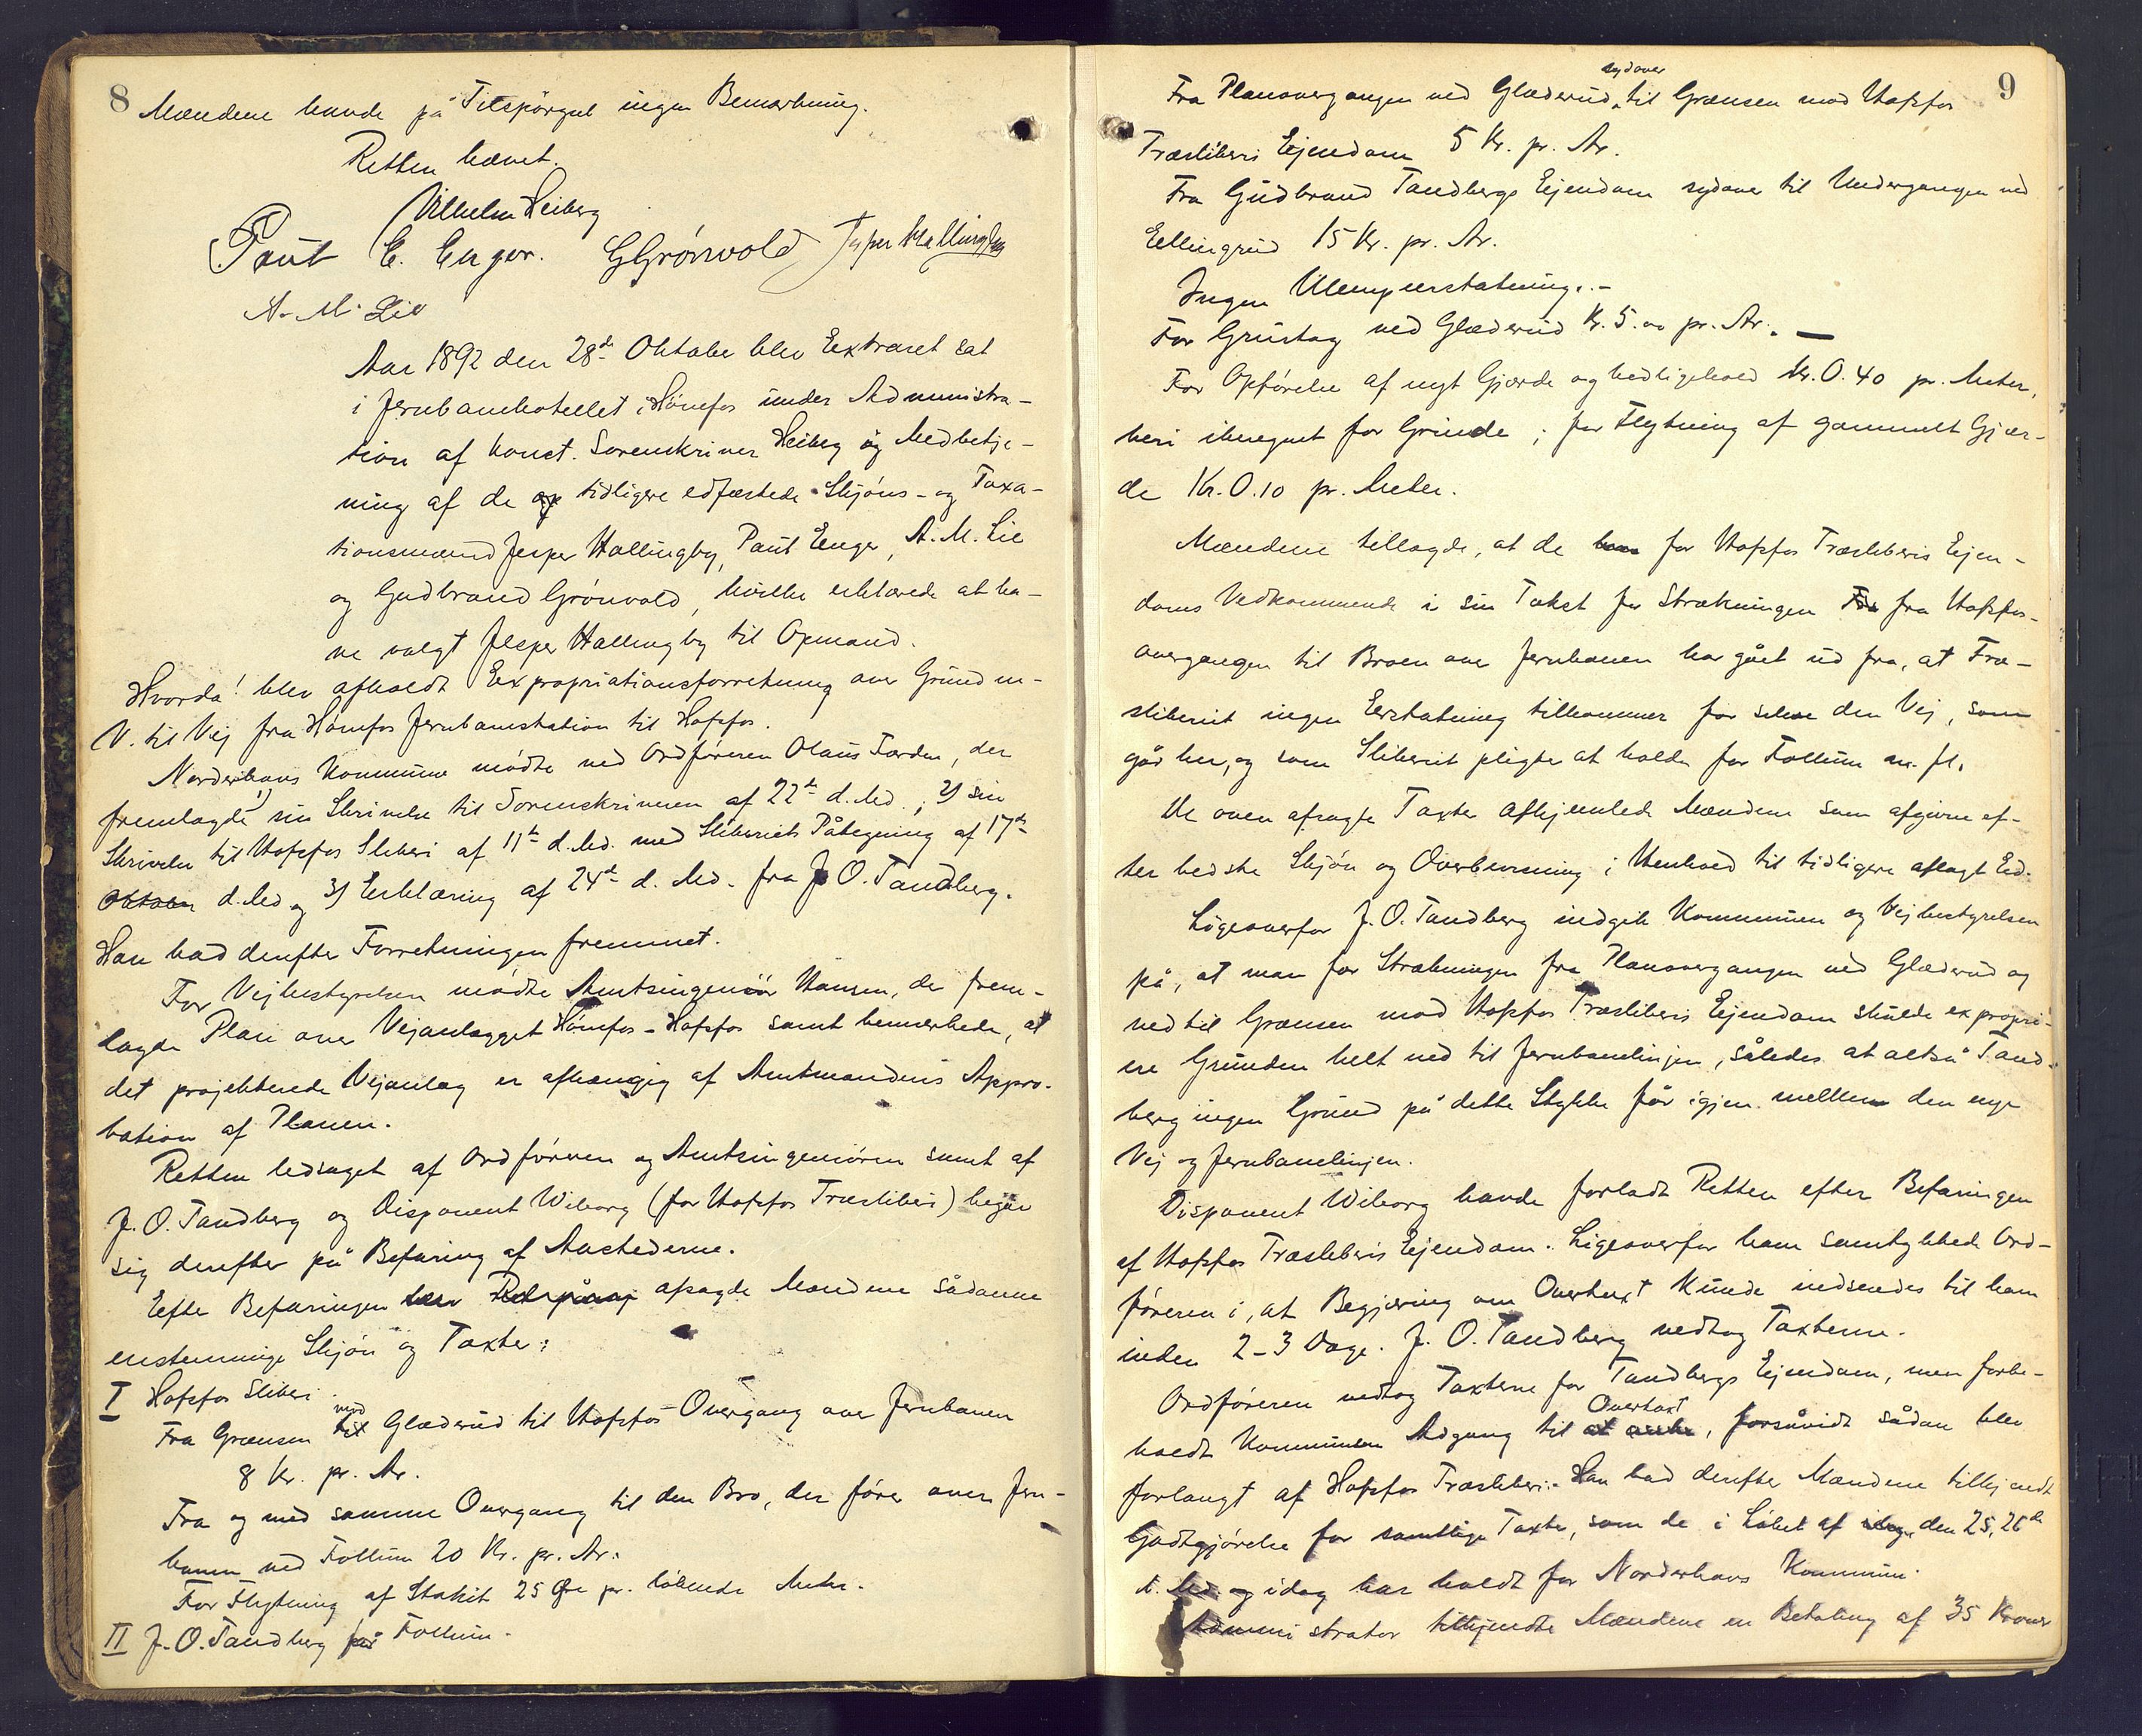 8
Mændene havde på Tilspörgsel ingen Bemærkning.
Retten hævet.
Vilhelm Heiberg
Paul E. Enger. G Grönvold Jesper Hallingby
A. M. Lie
Aar 1892 den 28de Oktober blev Extraret sat
i Jernbanehotellet i Hönefos under Administra-
tion af konst. Sorenskriver Heiberg og Medbetje-
ning af de tidligere edfæstede Skjöns- og Taxa-
tionsmænd Jesper Hallingby, Paul Enger, A. M. Lie
og Gudbrand Grönvold, hvilke erklærede at ha-
ve valgt Jesper Hallingby til Opmand.
Hvorda! blev afholdt Expropriationsforretning over Grund m-
V. til Vej fra Hönefos Jernbanestation til Hofsfos.
Norderhovs Kommune mödte ved Ordföreren Olaus Færden, der
fremlagde 1) sin Skrivelse til Sorenskriveren af 22de d. Md.; 2) sin
Skrivelse til Hofsfos Sliberi af 11te d. Md. med Sliberiets Påtegning af 17de
Oktober d. Md og 3) Erklæring af 24de d. Md. fra J. O. Tandberg.
Han bad derefter Forretningen fremmet.
For Vejbestyrelsen mödte Amtsingeniör Hansen, der frem-
lagde Plan over Vejanlægget Hönefos-Hofsfos samt bemærkede, at
det projekterede Vejanlæg er afhængig af Amtmandens Appro-
bation af Planen.
Retten ledsaget af Ordföreren og Amtsingeniören samt af
J. O. Tandberg og Disponent Wiborg (for Hofsfos Træsliberi) begav
sig derefter på Befaring af Aastederne.
Efter Befaringen afsagde Mændene sådanne
enstemmige Skjön og Taxter:
I Hofsfos Sliberi.
Fra Grænsen mod Glæderud til Hofsfos Overgang over Jernbanen
8 Kr. pr. Ar.
Fra og med samme Overgang til den Bro, der förer over Jern-
banen ved Follum 20 Kr. pr. Ar.
For Flytning af Stakit 25 Öre pr. löbende Meter.
II J. O. Tandberg på Follum.
9
Fra Planovergangen ved Glæderud sydover til Grænsen mod Hofsfos
Træsliberis Ejendom 5 Kr. pr. Ar.
Fra Gudbrand Tandbergs Ejendom sydover til Undergangen ved
Ellingrud 15 Kr. pr. Ar.
Ingen Ulempeerstatning.-
For Grustag ved Glæderud Kr. 5.00 pr. Ar. -
For Opförelse af nyt Gjærde og Vedligehold Kr. 0.40 pr. Meter,
heri iberegnet for Grinde; for Flytning af gammelt Gjær-
de Kr. 0.10 pr. Meter.
Mændene tillagde, at de for Hofsfos Træsliberis Ejen-
doms Vedkommende i sin Takst for Strækningen fra Hofsfos-
overgangen til Broen over Jernbanen har gået ud fra, at Træ-
sliberiet ingen Erstatning tilkommer for selve den Vej, som
går her, og som Sliberiet pligter at holde for Follum m. fl.
De oven afsagte Taxter afhjemlede Mændene som afgivne ef-
ter bedste Skjön og Overbevisning i Henhold til tidligere aflagt Ed.
Ligeoverfor J. O. Tandberg indgik Kommunen og Vejbestyrelsen
på, at man for Strækningen fra Planovergangen ved Glæderud og
ned til Grænsen mod Hofsfos Træsliberis Ejendom skulde expropri-
ere Grunden helt ned til Jernbanelinjen, således at altså Tand-
berg ingen Grund på dette Stykke får igjen mellem den nye
Vej og Jernbanelinjen.
Disponent Wiborg havde forladt Retten efter Befaringen
af Hofsfos Træsliberis Ejendom. Ligeoverfor ham samtykkede Ord-
föreren i, at Begjæring om Overtaxt kunde indsendes til ham
inden 2-3 Dage. J. O. Tandberg vedtog Taxterne.
Ordföreren vedtog Taxterne for Tandbergs Ejendom, men forbe-
holdt Kommunen Adgang til Overtaxt, forsåvidt sådan blev
forlangt af Hofsfos Træsliberi. Han bad derefter Mændene tilkjendt
Godtgjörelse for samtlige Taxter, som de i Löbet af den 25, 26de
d. Md. og idag har holdt for Norderhovs Kommune.
Administrator tilkjendte Mændene en Betaling af 35 Kroner